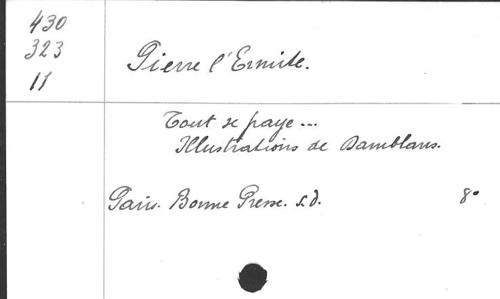 430
323
11
Pierre l'Ermite.
Tout se paye...
Illustrations de Damblans.
Paris. Bonne Presse. s.d. 8°